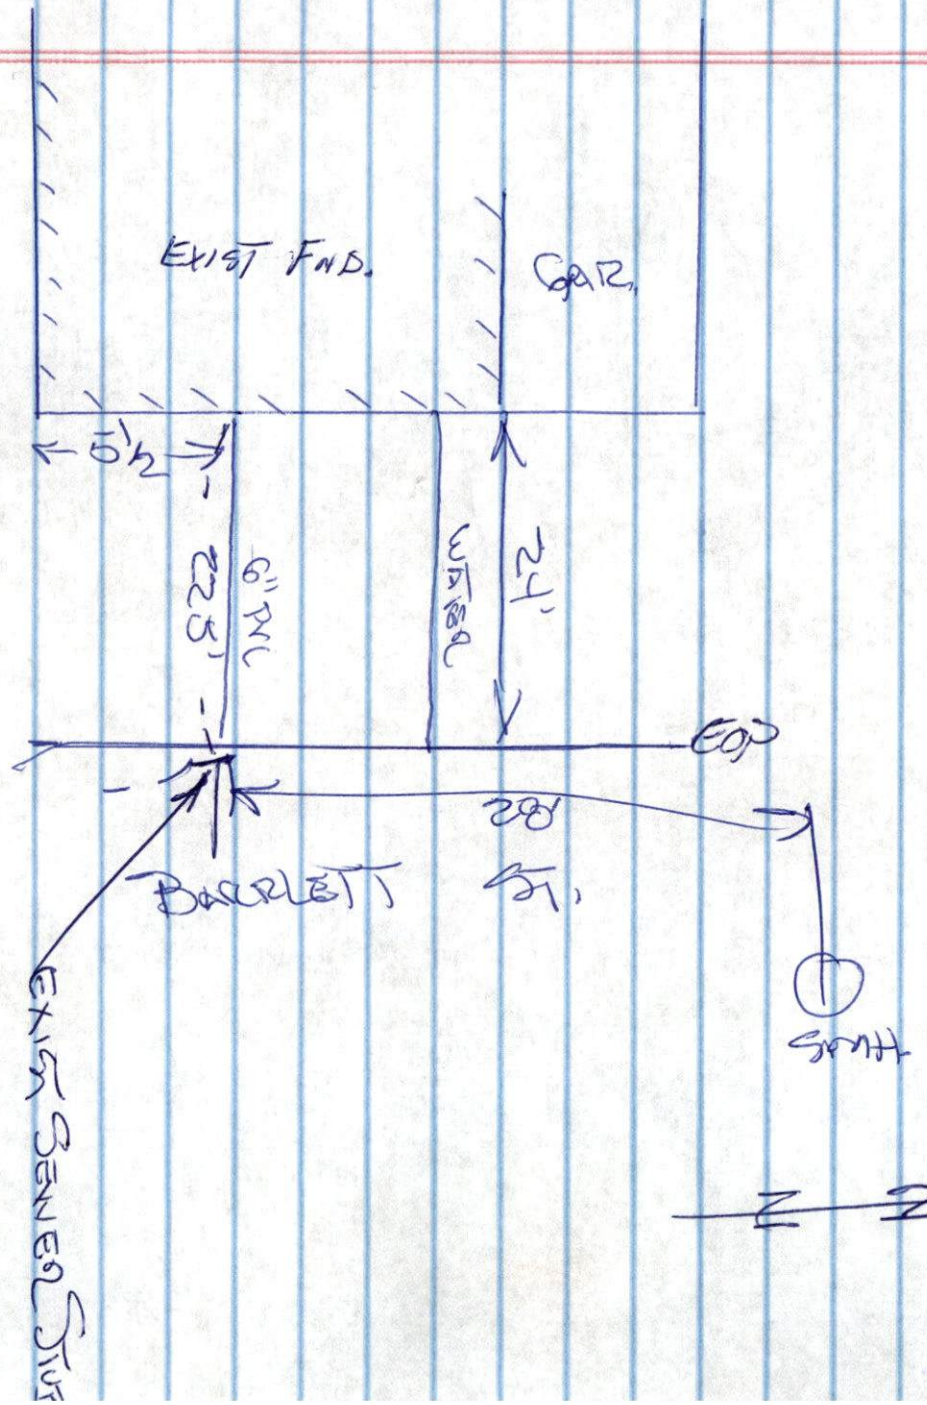 EXIST FND.
GAR.
6" PVC
WATER
24'
EOP
28'
BARRLETT ST.
SMH
EXIST SEWER STUB
N